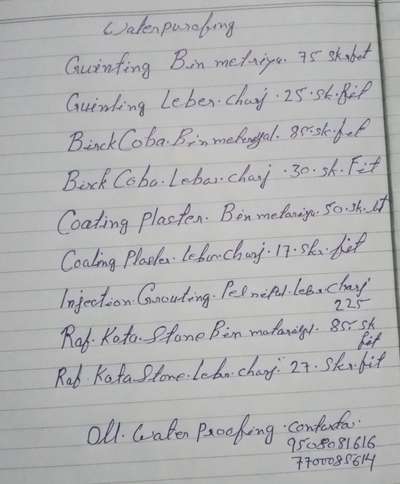 Waterpurofing
Guinting Bin metriya. 75 skrfit
Guinting Leber.charj.25.sk.fit
Birck Coba.Bin metreyal.85.sk.fit
Birck Coba.Lebar.charj.30.sk.Fit
Coating Plaster. Bin metariya.50.sk.
Coating Plaster.Lebur.charj.17.skr.fit
Injection.Grouting. Lebr charj
225
Raf.Kata.Stone Bin matariyal.85.sk
fit
Raf.Kata Stone.Lebr.charj.27.skr.fit
Oll.Water Proofing.
9508081616
7700085614